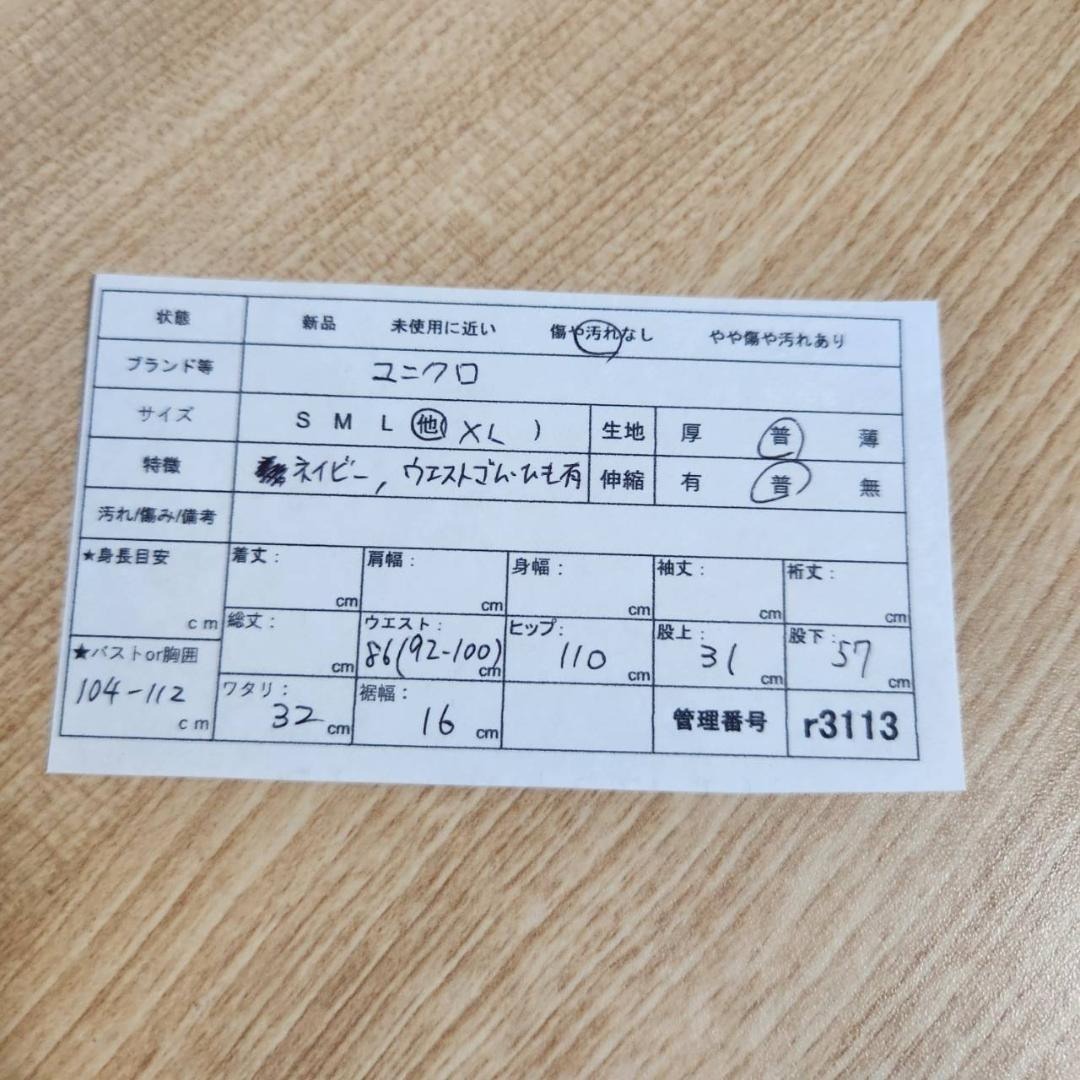 状態 新品 未使用に近い 傷や汚れなし やや傷や汚れあり
ブランド等 ユニクロ
サイズ S M L 他( XL ) 生地 厚 普 薄
特徴 ネイビー, ウエストゴム・ひも有 伸縮 有 普 無
汚れ/傷み/備考
★身長目安 cm 着丈: cm 肩幅: cm 身幅: cm 袖丈: cm 裄丈: cm
総丈: cm ウエスト: 86(92-100) cm ヒップ: 110 cm 股上: 31 cm 股下: 57 cm
★バストor胸囲 104-112 cm ワタリ: 32 cm 裾幅: 16 cm 管理番号 r3113